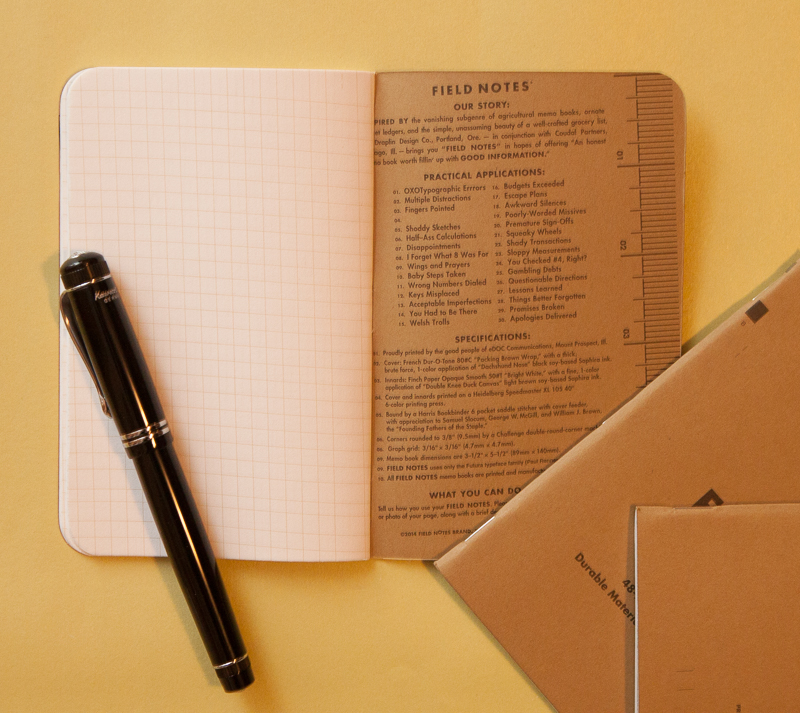 FIELD NOTES
OUR STORY:
PIRED BY the vanishing subgenre of agricultural memo books, ornate
ledgers, and the simple, unassuming beauty of a well-crafted grocery list,
Draplin Design Co., Portland, Ore. — in conjunction with Coudal Partners,
Ill. — brings you "FIELD NOTES" in hopes of offering "An honest
book worth fillin' up with GOOD INFORMATION."
PRACTICAL APPLICATIONS:
01. OXOTypographic Errors
02. Multiple Distractions
03. Fingers Pointed
04.
05. Shoddy Sketches
06. Half-Ass Calculations
07. Disappointments
08. I Forget What 8 Was For
09. Wings and Prayers
10. Baby Steps Taken
11. Wrong Numbers Dialed
12. Keys Misplaced
13. Acceptable Imperfections
14. You Had to Be There
15. Welsh Trolls
16. Budgets Exceeded
17. Escape Plans
18. Awkward Silences
19. Poorly-Worded Missives
20. Premature Sign-Offs
21. Squeaky Wheels
22. Shady Transactions
23. Sloppy Measurements
24. You Checked #4, Right?
25. Gambling Debts
26. Questionable Directions
27. Lessons Learned
28. Things Better Forgotten
29. Promises Broken
30. Apologies Delivered
SPECIFICATIONS:
01. Proudly printed by the good people of eDOC Communications, Mount Prospect, Ill.
02. Cover: French Dur-O-Tone 80#C "Packing Brown Wrap," with a thick,
brute force, 1-color application of "Dachshund Nose" black soy-based Saphira ink.
03. Innards: Finch Paper Opaque Smooth 50#T "Bright White," with a fine, 1-color
application of "Double Knee Duck Canvas" light brown soy-based Saphira ink.
04. Cover and innards printed on a Heidelberg Speedmaster XL 105 40"
6-color printing press.
05. Bound by a Harris Bookbinder 6 pocket saddle stitcher with cover feeder,
with appreciation to Samuel Slocum, George W. McGill, and William J. Brown,
the "Founding Fathers of the Staple."
06. Corners rounded to 3/8" (9.5mm) by a Challenge double-round-corner
08. Graph grid: 3/16" x 3/16" (4.7mm x 4.7mm).
09. Memo book dimensions are 3-1/2" x 5-1/2" (89mm x 140mm).
09. FIELD NOTES uses only the Futura typeface family (Paul
10. All FIELD NOTES memo books are printed and
WHAT YOU CAN DO
Tell us how you use your FIELD NOTES.
or photo of your page, along with a brief
©2014 FIELD NOTES BRAND.
01
02
03
48-
Durable Materi